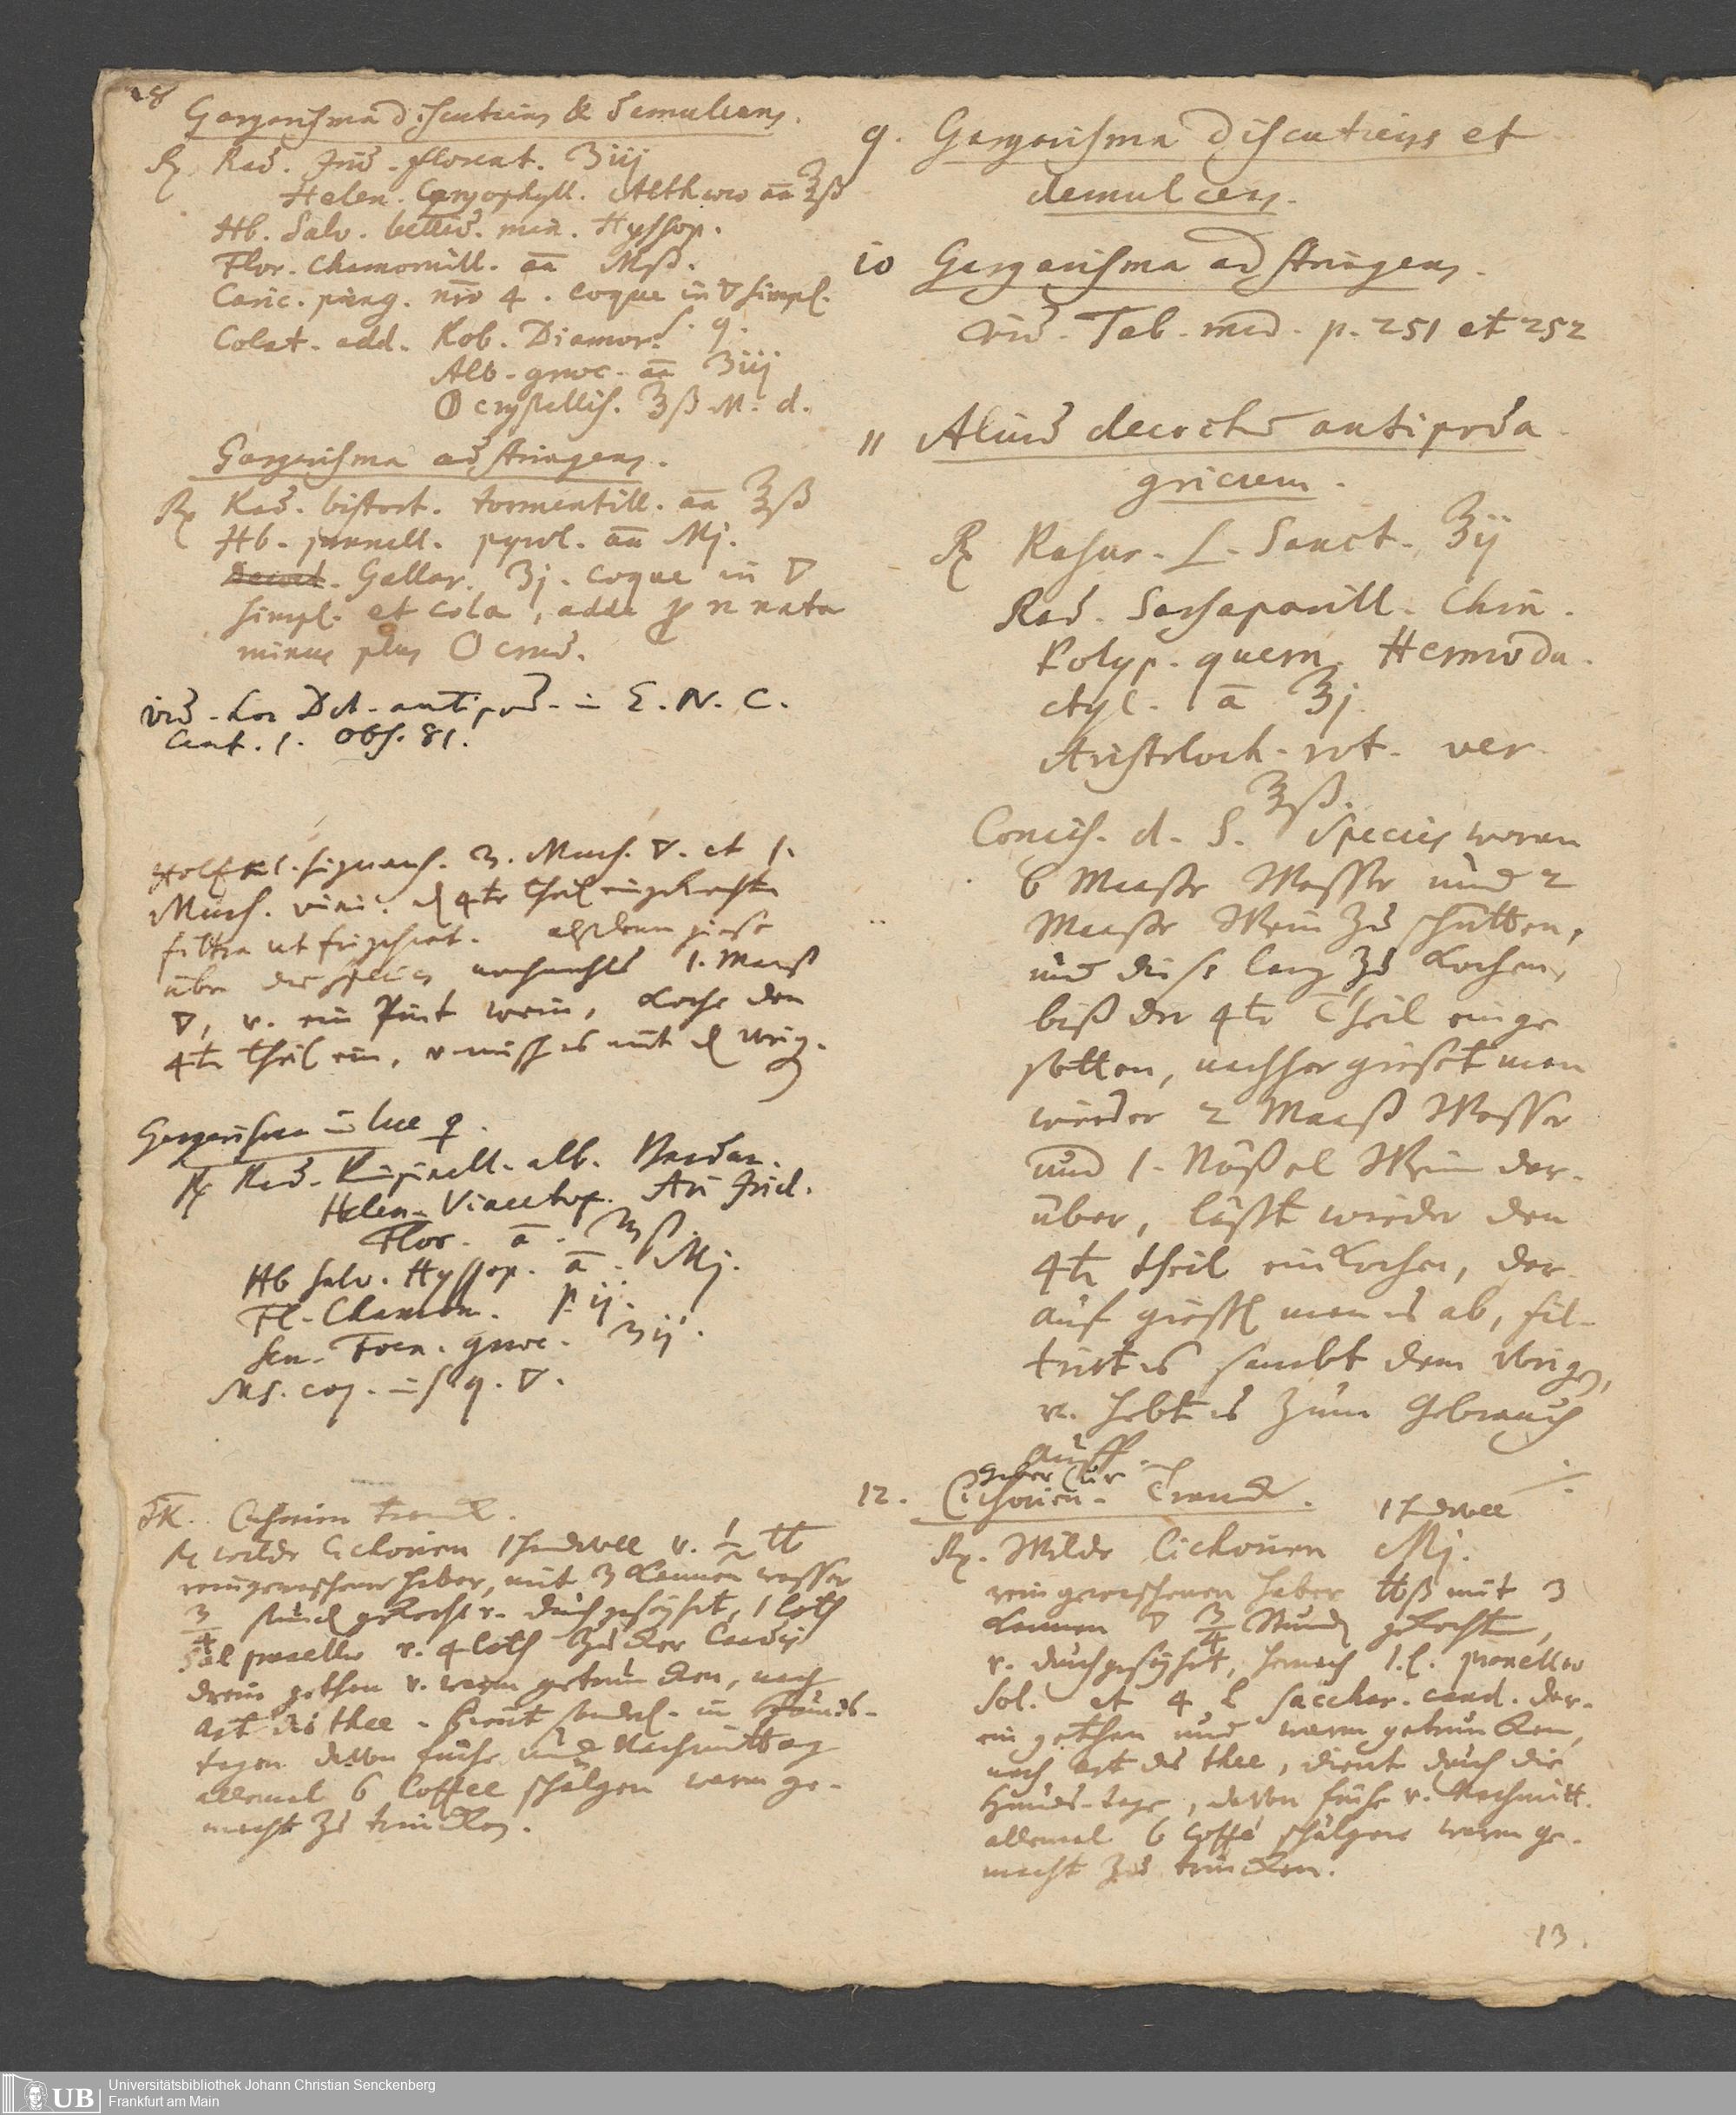 28
Gargarisma discutiens & demulcens.
Rx Rad. Irid. florent. ʒiij
Helen. Caryophyll. Altheae aa ℥ß
Hb. Salv. bellid. min. Hyssop.
Flor. Chamomill. aa Mß.
Caric. ping. nro 4. coque in ▽ simpl.
s. q.
Colat. add. Rob. Diamor.
Alb. graec. aa ʒiij
crystallis. ʒß M. d.
Gargarisma adstringens.
Rx Rad. bistort. tormentill. aa ℥ß
Hb. prunell. pyrol. aa Mj.
Gallar. ʒj. coque in ▽
simpl. et cola, adde p n nata
minus plus crud.
vid. Dct. antipod. in E. N. C.
Cent. 1. Obs. 81.
3. Maas. ▽. et 1.
Maas. vini. 4te theil eingekocht
filtra ut frigescat. alßdann giesse
über die species nochmahls 1. Maaß
▽, v. ein Pint wein, koche den
4te theil ein, v. misch es mit
Gargarisma in lue ♀.
Rx Rad. Pimpinell. alb. Bardan.
Helen. Vincetox. Ari Irid.
Flor. a. ʒß.
Hb Salv. Hyssop. a. Mj.
Fl. Chamom. p. ij.
Sem. Foen. graec. ʒij.
Ms. coq. in s. q. ▽.
Cichorien tranck.
Rx wilde Cichorien 1 handvoll v. ½ ℔
reingewaschene haber, mit 3 kannen wasser
3/4 stund gekocht v. durchgeseyhet, 1 loth
Sal prunellae v. 4 loth Zucker Candis
drein gethan v. warm getruncken, nach
art des thee. dient in hunds-
tagen davon frühe und Nachmittag
allemal 6 Coffee schälgen warm ge-
macht zu trincken.
9. Gargarisma discutiens et
demulcens.
10 Gargarisma adstringens.
vid. Tab. med. p. 251 et 252
11 Aliud decoctum antipoda
gricum.
Rx Rasur. L. Sanct. ℥ij
Rad. Sarsaparill. Chin.
Polyp. quern. Hermoda-
ctyl. a ℥j.
Aristoloch. rot. ver.
℥ß.
Concis. d. S. Species woran
6 Maaße Wasser und 2
Maaße Wein zu schütten,
und diese lang zu kochen,
biß der 4te Theil einge
sotten, nachher gießet man
wieder 2 Maaß Wasser
und 1. Nößel Wein dar-
über, läßt wieder den
4te theil einkochen, dar-
auf gießt man es ab, fil-
trirt es sambt dem
v. hebt es zum Gebrauch
auff.
12. Cichorien-Tranck.
Haber Cur
1 handvoll
Rx. Wilde Cichorien Mj.
rein gewaschenen haber ℔ß mit 3
kannen ▽ 3/4 Stund gekocht,
v. durchgeseyhet, hernach 1. l. prunellae
Sal. et 4 l. sacchar. cand. dar-
ein gethan und warm getruncken,
nach art des thee, dient durch die
Hunds-tage, davon frühe v. Nachmitt.
allemal 6 Coffé schälgen warm ge-
macht zu trincken.
13.
UB
Universitätsbibliothek Johann Christian Senckenberg
Frankfurt am Main